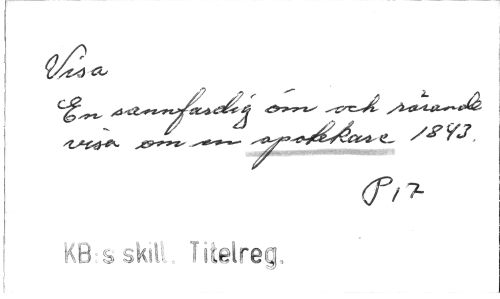 Visa
En sannfärdig öm och rörande
visa om en apotekare 1843.
P 17
KB:s skill. Titelreg.